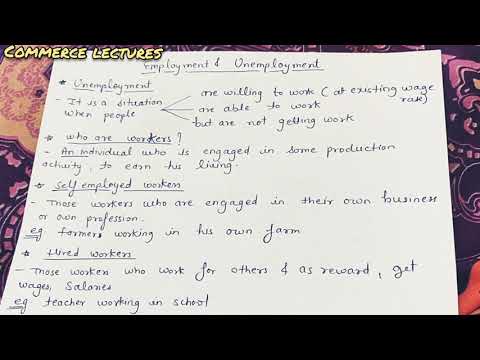 COMMERCE LECTURES
Employment & Unemployment
* Unemployment
are willing to work (at existing wage rate)
- It is a situation when people
are able to work
but are not getting work
* who are workers?
- An individual who is engaged in some production
activity, to earn his living.
* Self employed workers
- Those workers who are engaged in their own business
or own profession.
eg farmers working in his own farm
* Hired workers
- Those worker who work for others & as reward, get
wages, salaries
eg teacher working in school